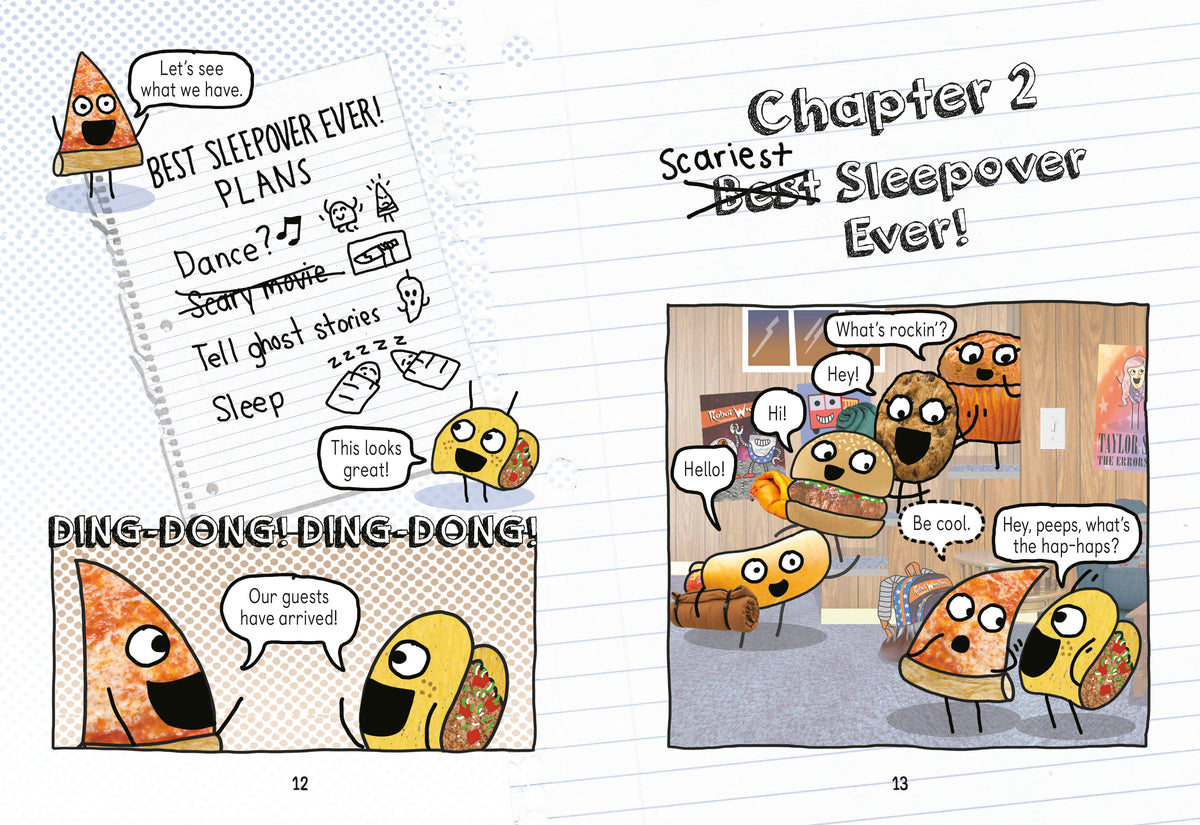 Let's see
what we have.
BEST SLEEPOVER EVER!
PLANS
Dance?
Scary movie
Tell ghost stories
zzzzz
Sleep
This looks
great!
DING-DONG! DING-DONG!
Our guests
have arrived!
12
Chapter 2
Scariest
Best Sleepover
Ever!
What's rockin'?
Hey!
Hi!
Hello!
Be cool.
Hey, peeps, what's
the hap-haps?
TAYLOR S
THE ERRORS
13